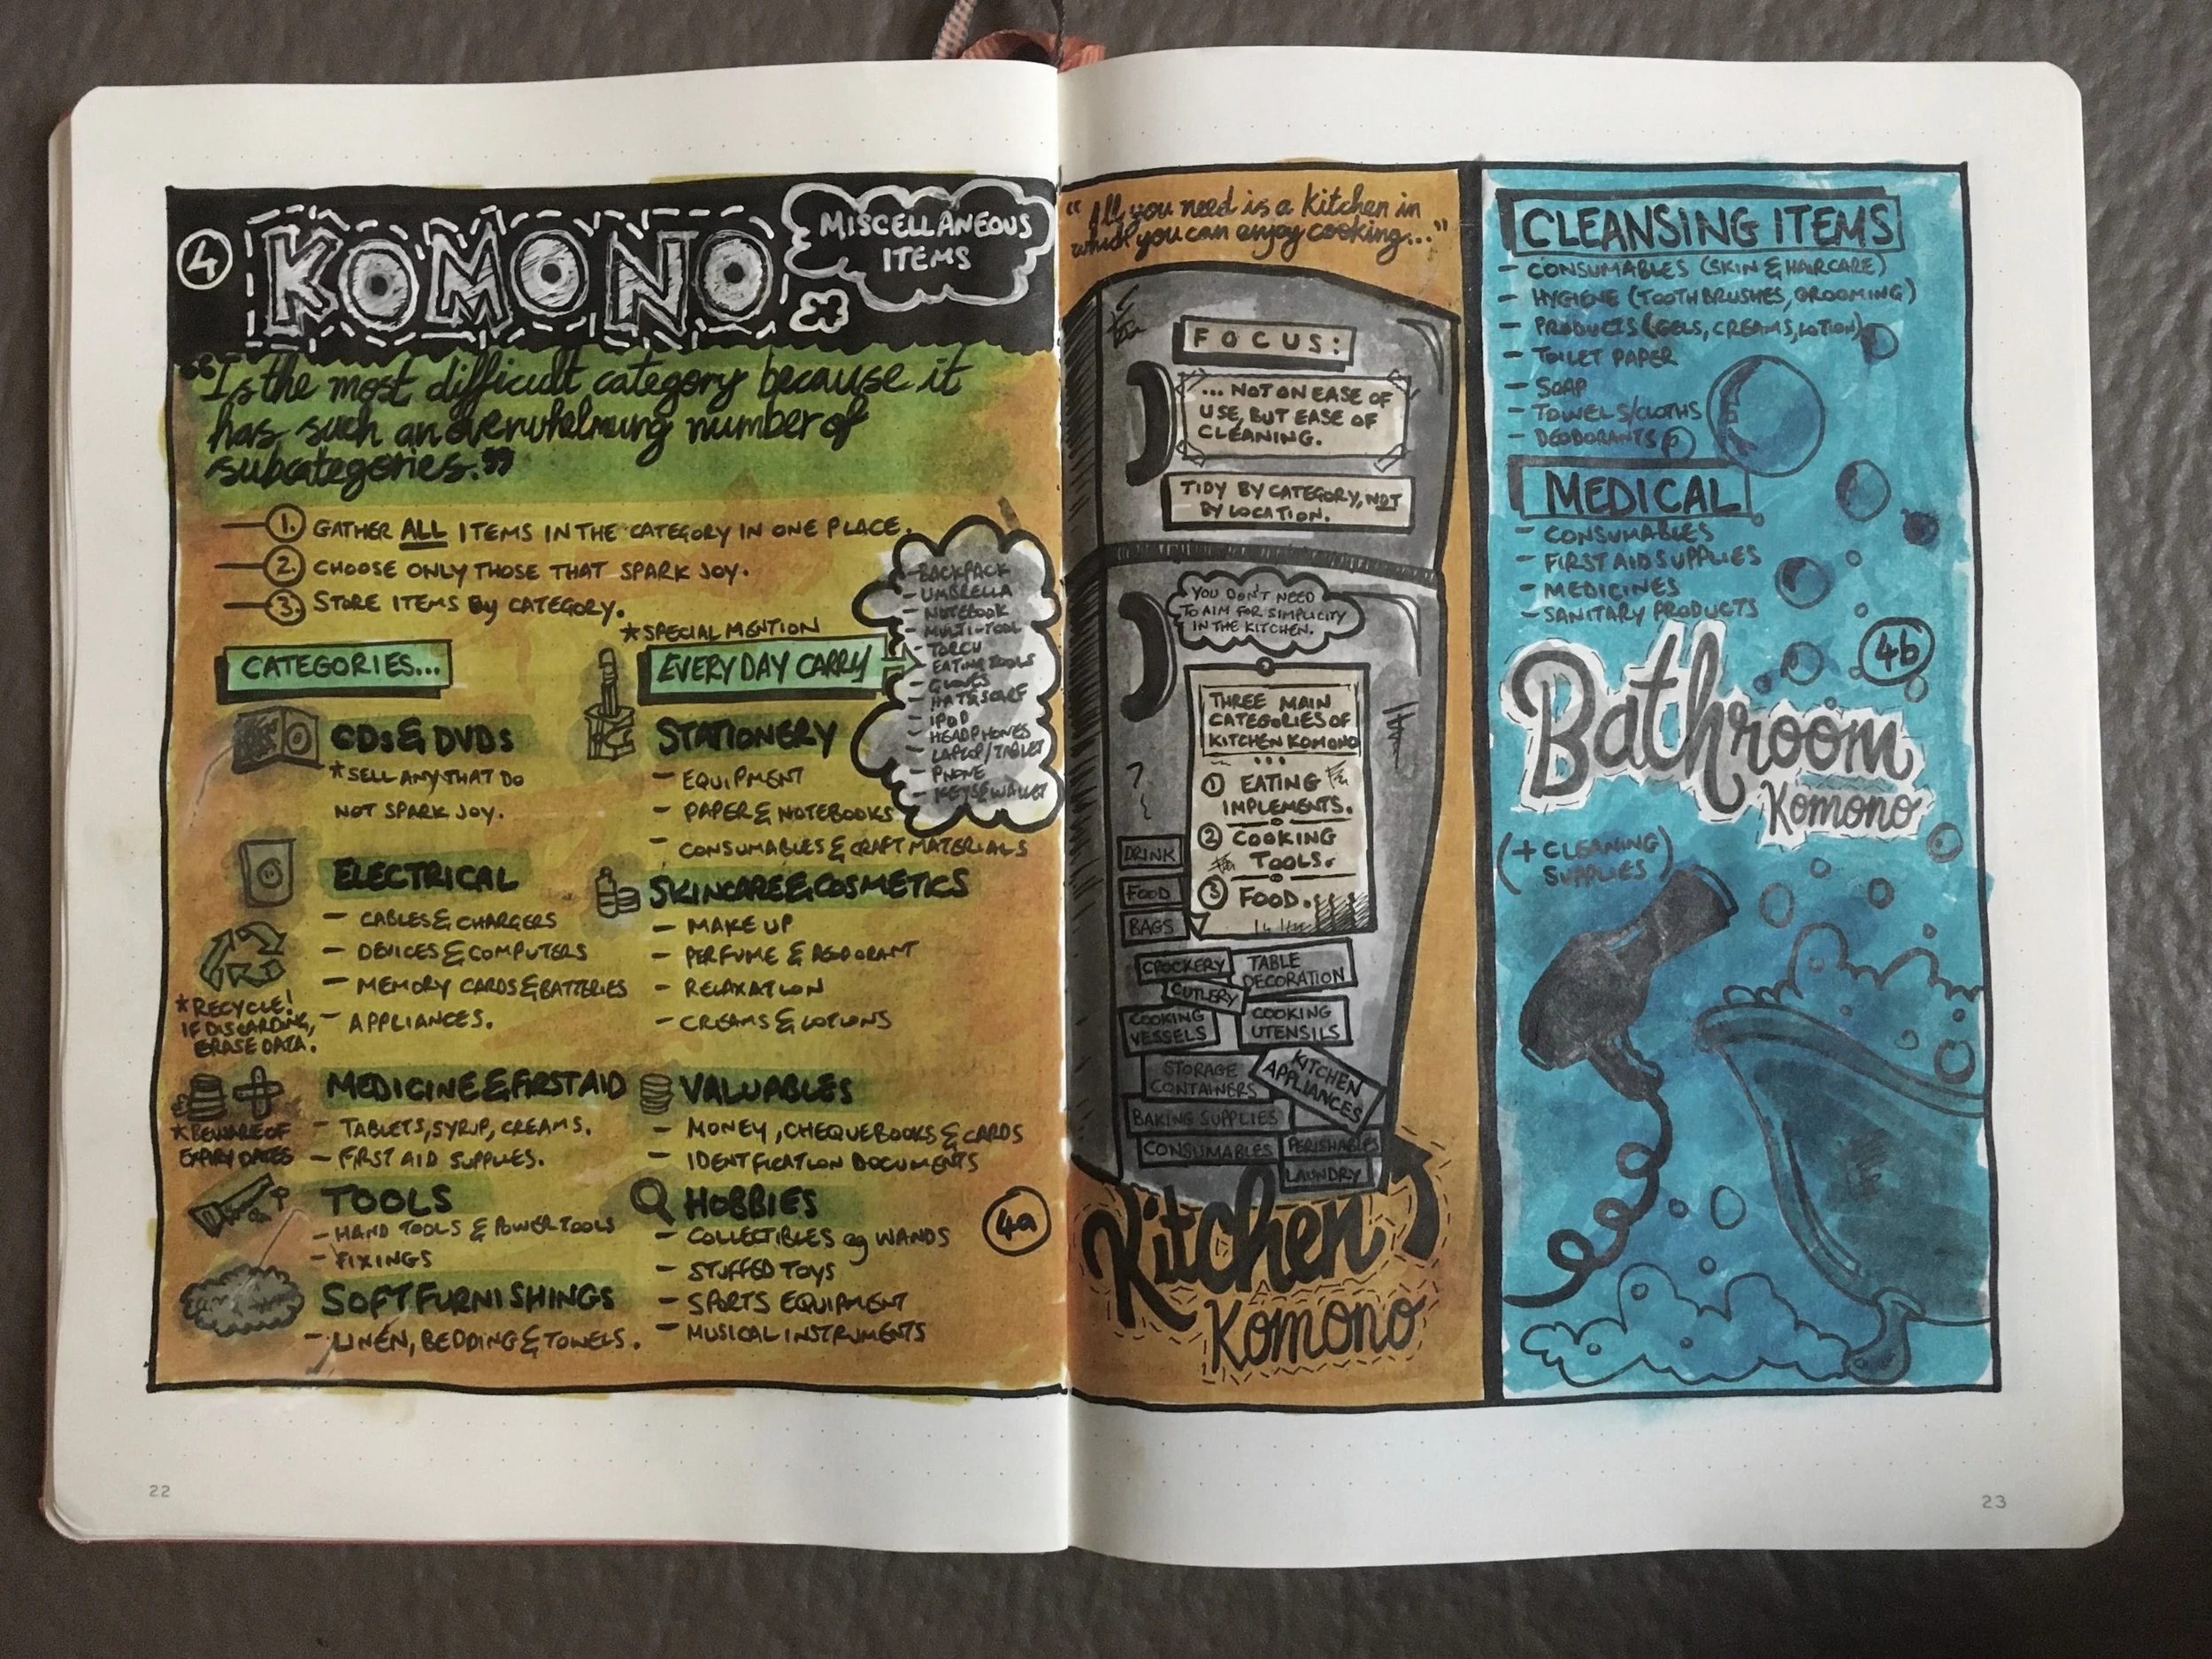 4
KOMONO
MISCELLANEOUS
ITEMS
"Is the most difficult category because it
has such an overwhelming number of
subcategories."
1. GATHER ALL ITEMS IN THE CATEGORY IN ONE PLACE.
2. CHOOSE ONLY THOSE THAT SPARK JOY.
3. STORE ITEMS BY CATEGORY.
CATEGORIES...
CDs & DVDs
*SELL ANY THAT DO
NOT SPARK JOY.
ELECTRICAL
- CABLES & CHARGERS
- DEVICES & COMPUTERS
- MEMORY CARDS & BATTERIES
- APPLIANCES.
*RECYCLE!
IF DISCARDING,
ERASE DATA.
MEDICINE & FIRST AID
- TABLETS, SYRUP, CREAMS.
- FIRST AID SUPPLIES.
*BEWARE OF
EXPIRY DATES
TOOLS
- HAND TOOLS & POWER TOOLS
- FIXINGS
SOFT FURNISHINGS
- LINEN, BEDDING & TOWELS.
*SPECIAL MENTION
EVERYDAY CARRY
- BACKPACK
- UMBRELLA
- NOTEBOOK
- MULTI-TOOL
- TORCH
- EATING TOOLS
- GLOVES
- HAT & SCARF
- IPOD
- HEADPHONES
- LAPTOP/TABLET
- PHONE
- KEYS & WALLET
STATIONERY
- EQUIPMENT
- PAPER & NOTEBOOKS
- CONSUMABLES & CRAFT MATERIALS
SKINCARE & COSMETICS
- MAKE UP
- PERFUME & DEODORANT
- RELAXATION
- CREAMS & LOTIONS
VALUABLES
- MONEY, CHEQUEBOOKS & CARDS
- IDENTIFICATION DOCUMENTS
HOBBIES
- COLLECTIBLES eg WANDS
- STUFFED TOYS
- SPORTS EQUIPMENT
- MUSICAL INSTRUMENTS
4a
22
"All you need is a Kitchen in
which you can enjoy cooking..."
FOCUS:
... NOT ON EASE OF
USE, BUT EASE OF
CLEANING.
TIDY BY CATEGORY, NOT
BY LOCATION.
YOU DON'T NEED
TO AIM FOR SIMPLICITY
IN THE KITCHEN.
THREE MAIN
CATEGORIES OF
KITCHEN KOMONO
...
1 EATING
IMPLEMENTS.
2 COOKING
TOOLS.
3 FOOD.
DRINK
FOOD
BAGS
CROCKERY
TABLE
DECORATION
CUTLERY
COOKING
VESSELS
COOKING
UTENSILS
STORAGE
CONTAINERS
KITCHEN
APPLIANCES
BAKING SUPPLIES
CONSUMABLES
PERISHABLES
LAUNDRY
Kitchen
Komono
CLEANSING ITEMS
- CONSUMABLES (SKIN & HAIRCARE)
- HYGIENE (TOOTHBRUSHES, GROOMING)
- PRODUCTS (GELS, CREAMS, LOTION)
- TOILET PAPER
- SOAP
- TOWELS/CLOTHS
- DEODORANTS
MEDICAL
- CONSUMABLES
- FIRST AID SUPPLIES
- MEDICINES
- SANITARY PRODUCTS
4b
Bathroom
Komono
(+ CLEANING
SUPPLIES)
23